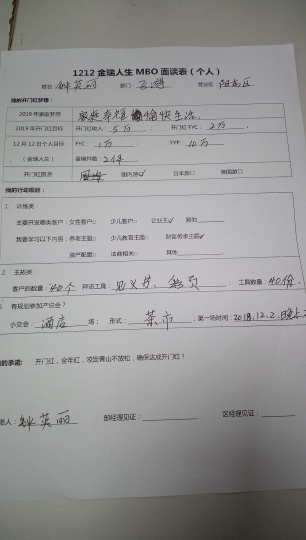 1212金瑞人生MBO面谈表（个人）
姓名：钟英丽 部门： 营业区：阳东区
我的开门红梦想：
2019年家庭梦想 家庭幸福 愉快生活.
2019年开门红目标 开门红收入：5万 开门红FYC：2万
12月12日个人目标 FYC：1万 FYP：10万
（金瑞人生） 金瑞件数：2件
开门红旅游 国内游✓ 日本游□ 韩国游□
我的行动规划：
1. 训练类：
主要开发哪类客户：女性客户□ 少儿客户□ 企业主✓ 其他
我要学习以下内容：养老主题□ 少儿教育主题□ 财富传承主题✓
资产配置□ 法商相关□ 其他
2. 主拓类：
客户的数量：40个 拜访工具： 彩页 ；工具数量：40份.
3. 有规划参加产说会？
小交会：酒店 场； 形式：茶市 ；第一场时间：2018.12.2.晚上
的承诺： 开门红，全年红，咬定青山不放松，确保达成开门红！
人：钟英丽 部经理见证： 区经理见证：